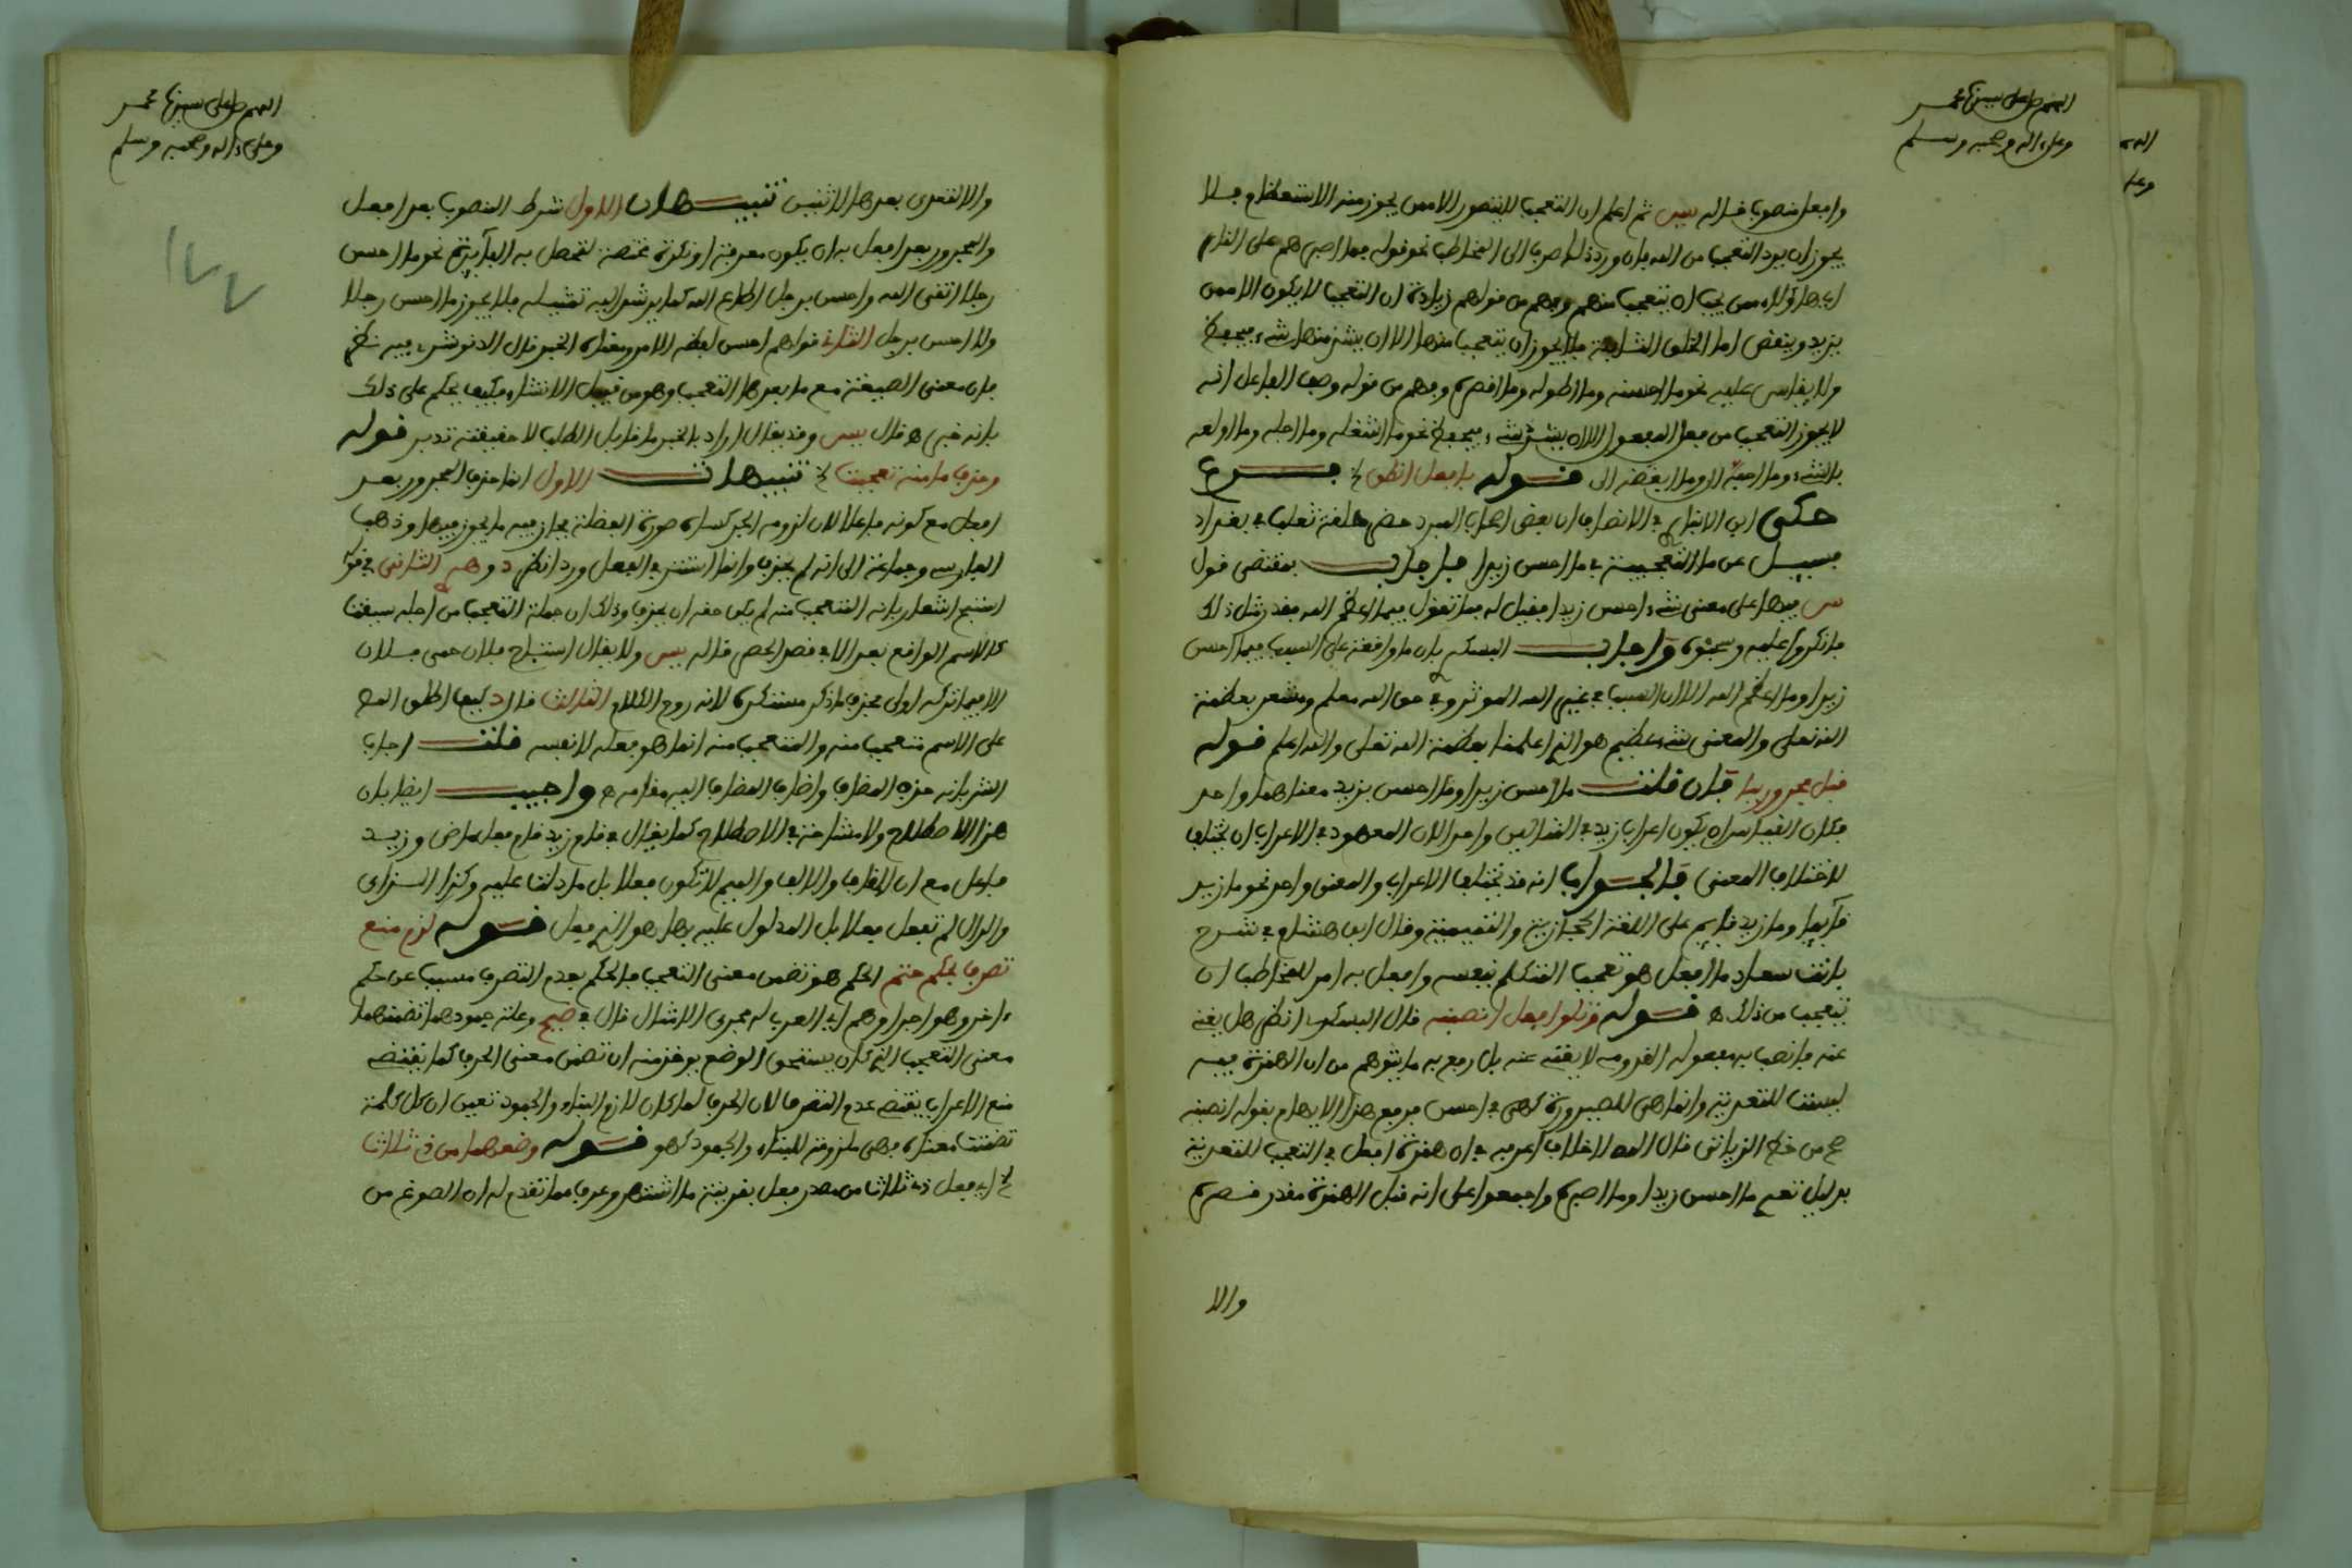 اللهم صل على سيدنا محمد
وعلى اله وصحبه وسلم
وافعل منصوبا قاله يس ثم اعلم ان التعجب لا يتصور الا ممن يجوز منه الاستعظام فلا
يجوز ان يرد التعجب من الله فان ورد ذلك صرف الى المخاطب نحو قوله فما اصبرهم على النار
اي هؤلاء ممن يجب ان يتعجب منهم وفهم من قولهم زيادة ان التعجب لا يكون الا ممن
يزيد وينقص اما الخلق الثابتة فلا يجوز ان يتعجب منها الا ان يشذ منها شيء فيحفظ
ولا يقاس عليه نحو ما احسنه وما اطوله وما اقصره وفهم من قوله وصف الفاعل انه
لا يجوز التعجب من فعل المفعول الا ان يشذ شيء فيحفظ نحو ما اشغله وما اجله وما اولعه
بالشيء وما احبه الي وما ابغضه الي قوله بافعل انطق الخ فرع
حكى ابن الانباري في الانصاف ان بعض اصحاب المبرد حضر حلقة ثعلب في بغداد
فسئل عن ما التعجبية في ما احسن زيدا فاجاب بمقتضى قول
س فيها على معنى شيء احسن زيدا فقيل له فما تقول فيما اعظم الله فقدر مثل ذلك
فانكروا عليه وسحبوه واجاب البسكي بان ما واقعة على السبب فيما احسن
زيدا وما اعظم الله الا ان السبب في غير الله الموثر وفي حق الله معلم ومشعر بعظمة
الله تعالى والمعنى شيء عظيم هو الذي اعلمنا بعظمة الله تعالى والله اعلم قوله
قبل مجرور ببا فان قلت ما احسن زيدا وما احسن بزيد معناهما واحد
فكان القياس ان يكون اعراب زيد في المثالين واحد لان المعهود في الاعراب ان يختلف
لاختلاف المعنى فالجواب انه قد يختلف الاعراب والمعنى واحد نحو ما زيد
قائما وما زيد قايم على اللغة الحجازية والتميمية وقال ابن هشام في شرح
بانت سعاد ما افعل هو تعجب المتكلم بنفسه وافعل به امر للمخاطب ان
يتعجب من ذلك ه قوله وتلو افعل انصبنه قال البسكي انظر هل يغني
عنه فانصب به مفعوله القروسه لا يغني عنه بل رفع به ما يتوهم من ان الهمزة فيه
ليست للتعدية وانما هي للصيرورة كهي في احسن فرفع هذا الايهام بقوله انصبنه
صح من خط الزياتي قال المص لا خلاف اعرفه في ان همزة افعل في التعجب للتعدية
بدليل نحو ما احسن زيدا وما اصبره واجمعوا على انه قبل الهمزة مقدر قصره
والا
اللهم صل على سيدنا محمد
وعلى ءاله وصحبه وسلم
١٧٧
والا لتعدى بعدها لاثنين تنبيهان الاول شرط المنصوب بعد افعل
والمجرور بعد افعل به ان يكون معرفة او نكرة مختصة لتحصل به الفائدة نحو ما احسن
رجلا اتقى الله واحسن برجل اطاع الله كما يرشد اليه تمثيله فلا يجوز ما احسن رجلا
ولا احسن برجل الثاني قولهم احسن لفظه الامر ومعناه الخبر قال الدنوشري فيه نظر
فان معنى الصيغة مع ما بعدها التعجب وهو من قبيل الانشاء فكيف يحكم على ذلك
بانه خبر ه قال يس وقد يقال اراد بالخبر ما قابل الطلب لا حقيقته تدبر قوله
وحذف ما منه تعجبت الخ تنبيهات الاول انما حذف المجرور بعد
افعل مع كونه فاعلا لان لزومه الجر كساه صورة الفضلة فجاز فيه ما يجوز فيها وذهب
الفارسي وجماعة الى انه لم يحذف وانما استتر في الفعل ورد انظر د وهم الثاني في قوله
استبح اشعار بانه المتعجب منه لم يكن حقه ان يحذف وذلك ان جملة التعجب من اجله سيقت
كالاسم الواقع بعد الا في قصد الحصر قاله يس ولا يقال استباح فلان حمى فلان
الا فيما تركه اولى فحذف ما ذكر مستكره لانه روح الكلام الثالث قال د كيف اطلق المص
على الاسم متعجب منه والمتعجب منه انما هو فعله لا نفسه قلت اجاب
الش بانه حذف المضاف واضاف المضاف اليه مقامه ه واجيب ايضا بان
هذا الاصطلاح ولا مشاحة في الاصطلاح كما يقال في قام زيد قام فعل ماض وزيد
فاعل مع ان القاف والالف والميم لا تكون فعلا بل ما دلت عليه وكذا الزاي
والدال لم تفعل فعلا بل المدلول عليه بها هو الذي فعل قوله لزم منع
تصرف بحكم حتم الحكم هو تضمن معنى التعجب فالحكم بعدم التصرف مسبب عن حكم
ءاخر وهو اجراوهم اي العرب له مجرى الامثال قال في ضيح وعلة جمودهما تضمنهما
معنى التعجب الذي كان يستحق الوضع بوضع منه ان تضمن معنى الحرف كما يقتضي
منع الاعراب يقتضي عدم التصرف لان الحرف لما كان لازم البناء والجمود تعين ان كل كلمة
تضمنت معناه فهي ملزومة للبناء والجمود كهو قوله وضعهما من ذي ثلاث
الخ اي فعل ذي ثلاث من مصدر فعل بقرينة ما اشتهر وعرف مما تقدم له ان الصوغ من